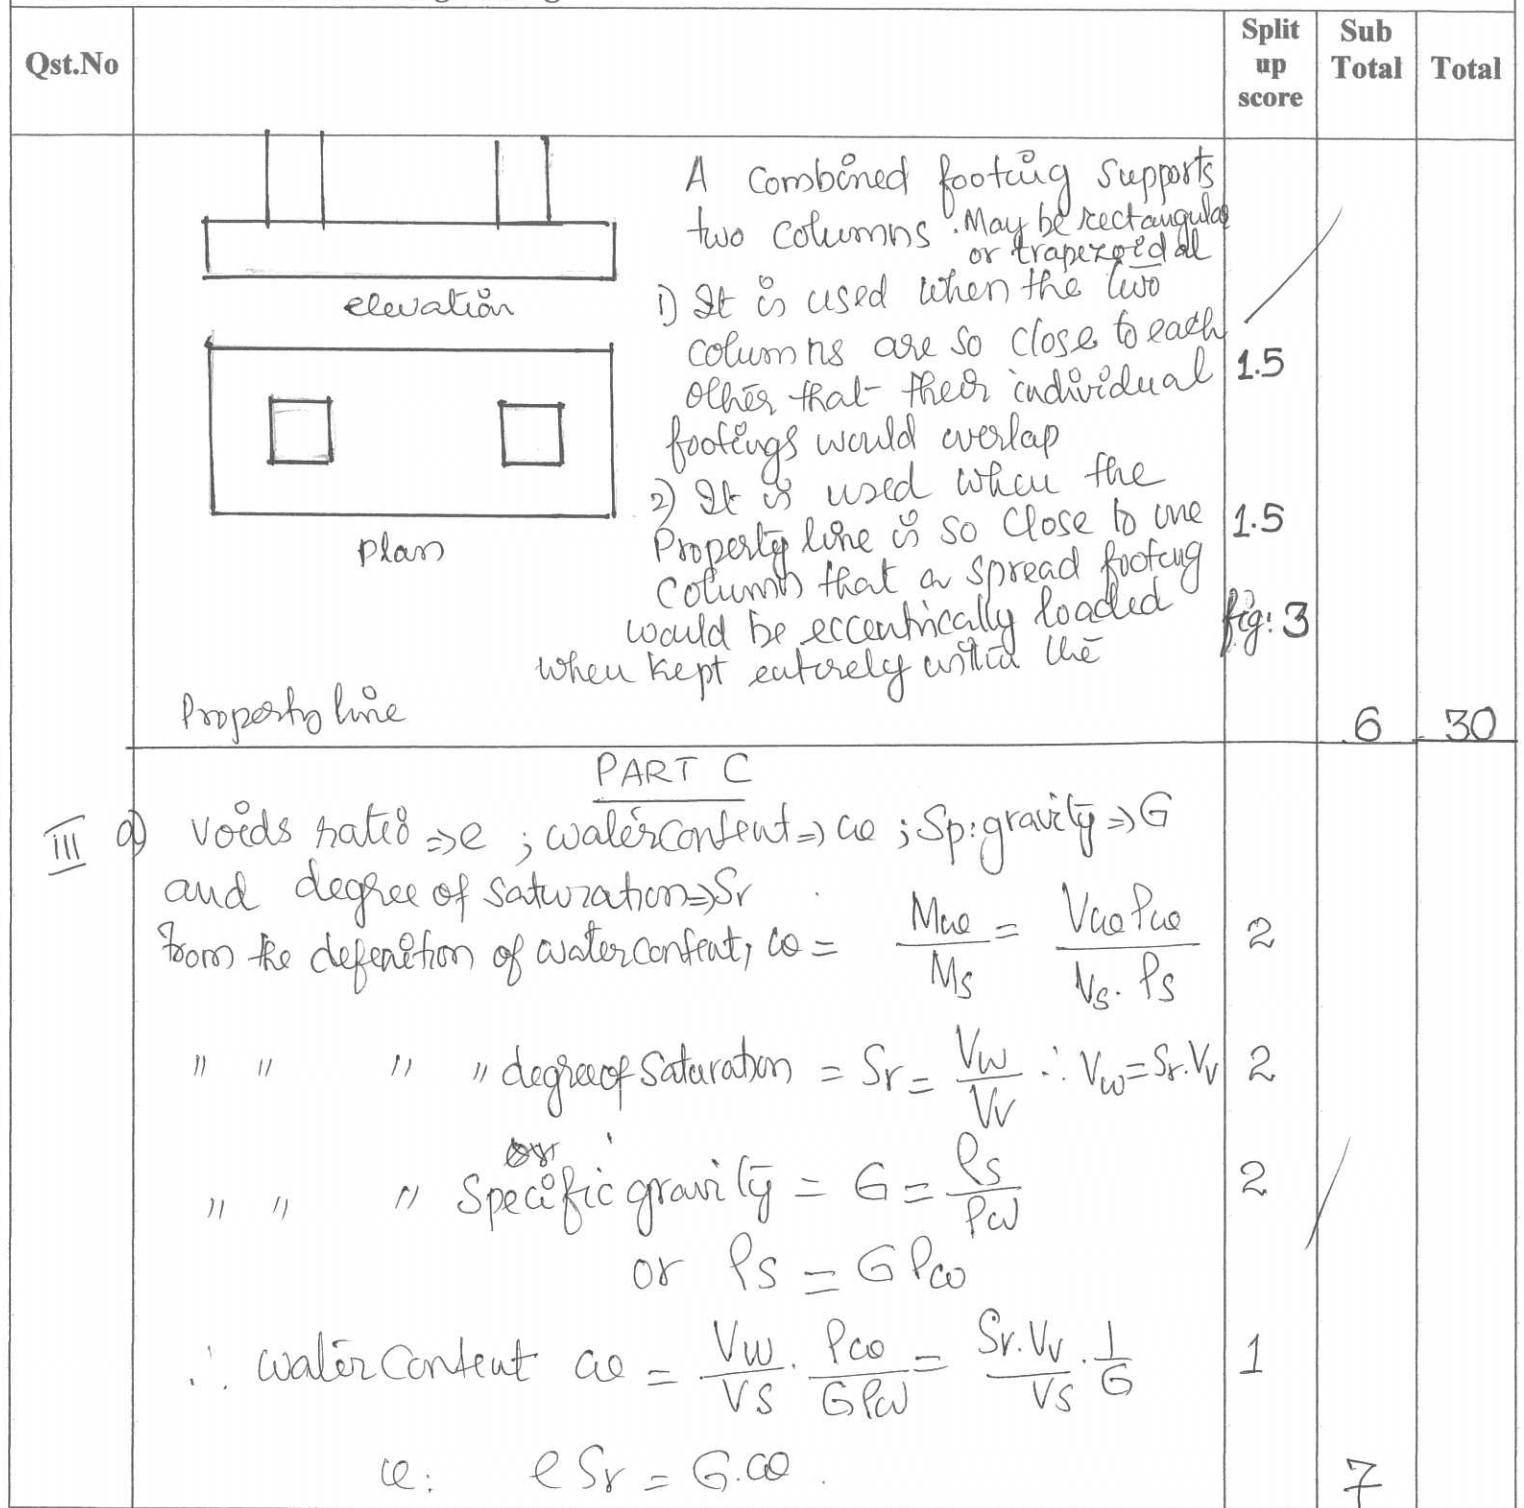 Qst.No
Split up score
Sub Total
Total
elevation
plan
A combined footing supports
two columns. May be rectangular
or trapezoidal
1) It is used when the two
columns are so close to each
other that their individual
footings would overlap
1.5
2) It is used when the
Property line is so close to one
column that a spread footing
would be eccentrically loaded
when kept entirely within the
Property line
1.5
fig: 3
6
30
PART C
III a) Voids ratio ⇒ e ; water content ⇒ ω ; Sp: gravity ⇒ G
and degree of saturation ⇒ Sr
from the definition of water content, ω = Mω/Ms = Vω ρω / Vs. ρs 2
" " " " degree of saturation = Sr = Vw/Vv ∴ Vw = Sr.Vv 2
" " " Specific gravity = G = ρs/ρω 2
or ρs = G ρω
∴ water content ω = Vw/Vs . ρω/Gρω = Sr.Vv/Vs . 1/G 1
ie: e Sr = G.ω.
7